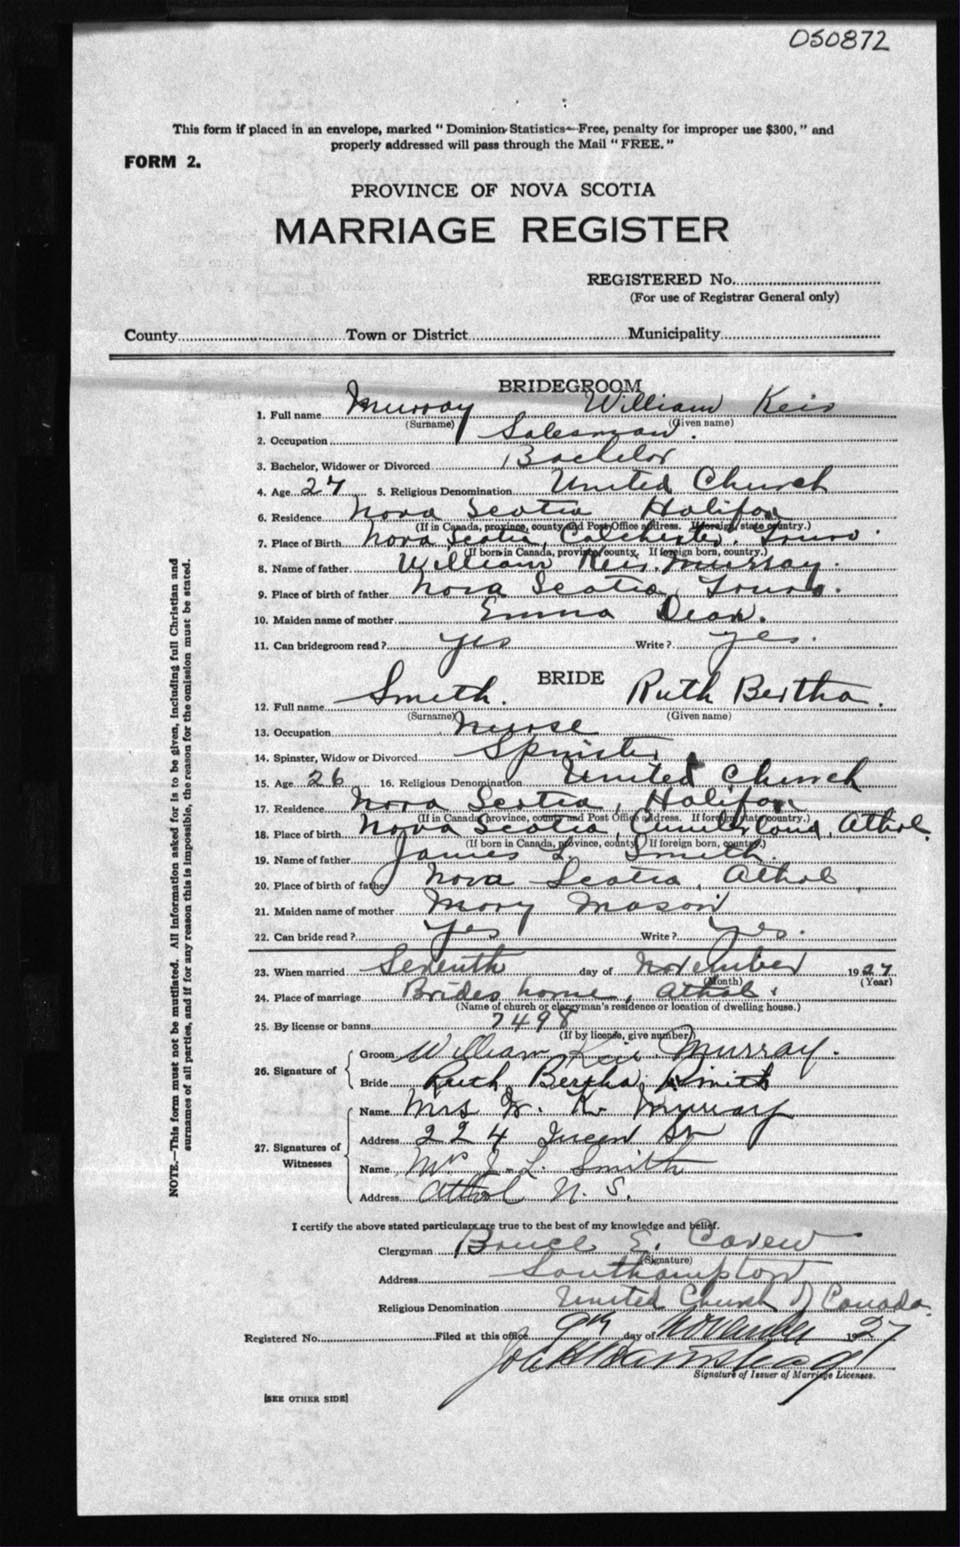 050872
This form if placed in an envelope, marked "Dominion Statistics—Free, penalty for improper use $300," and
properly addressed will pass through the Mail "FREE."
FORM 2.
PROVINCE OF NOVA SCOTIA
MARRIAGE REGISTER
REGISTERED No.
(For use of Registrar General only)
County Town or District Municipality
BRIDEGROOM
1. Full name Murray William Keir
(Surname) (Given name)
2. Occupation Salesman.
3. Bachelor, Widower or Divorced Bachelor
4. Age 27 5. Religious Denomination United Church
6. Residence Nova Scotia Halifax
(If in Canada, province, county and Post Office address. If foreign, state country.)
7. Place of Birth Nova Scotia, Colchester, Truro.
(If born in Canada, province, county. If foreign born, country.)
8. Name of father William Keir Murray.
9. Place of birth of father Nova Scotia, Truro.
10. Maiden name of mother Emma Dean.
11. Can bridegroom read? yes Write? yes.
BRIDE
12. Full name Smith. Ruth Bertha.
(Surname) (Given name)
13. Occupation Nurse
14. Spinster, Widow or Divorced Spinster
15. Age 26 16. Religious Denomination United Church
17. Residence Nova Scotia, Halifax
(If in Canada, province, county and Post Office address. If foreign, state country.)
18. Place of birth Nova Scotia, Cumberland, Athol.
(If born in Canada, province, county. If foreign born, country.)
19. Name of father James L. Smith.
20. Place of birth of father Nova Scotia, Athol
21. Maiden name of mother Mary Mason
22. Can bride read? Yes Write? Yes.
23. When married Seventh day of November 1927
(Month) (Year)
24. Place of marriage Brides home, Athol.
(Name of church or clergyman's residence or location of dwelling house.)
25. By license or banns 7498
(If by license, give number)
26. Signature of
Groom William Keir Murray.
Bride Ruth Bertha Smith
27. Signatures of Witnesses
Name Mrs W. K. Murray
Address 224 Queen St
Name Mrs J. L. Smith
Address Athol N. S.
I certify the above stated particulars are true to the best of my knowledge and belief.
Clergyman Bruce E.
(Signature)
Address Southampton
Religious Denomination United Church of Canada.
Registered No. Filed at this office 9th day of November 1927
Signature of Issuer of Marriage Licenses.
[SEE OTHER SIDE]
NOTE.—This form must not be mutilated. All information asked for is to be given, including full Christian and
surnames of all parties, and if for any reason this is impossible, the reason for the omission must be stated.